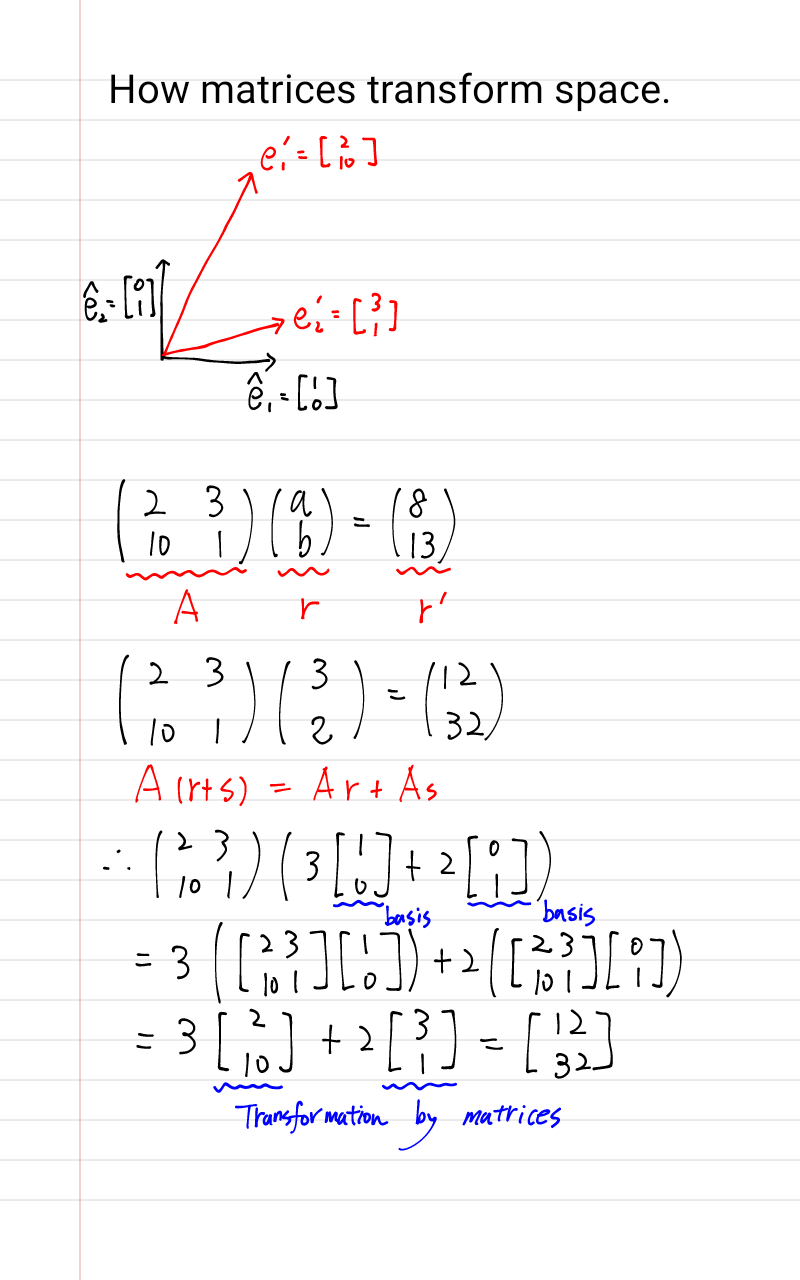 How matrices transform space.
e₁' = [2 10]
ê₂ = [0 1]
e₂' = [3 1]
ê₁ = [1 0]
(2 3 10 1) (a b) = (8 13)
A r r'
(2 3 10 1) (3 2) = (12 32)
A (r+s) = Ar + As
∴ (2 3 10 1) (3 [1 0] + 2 [0 1])
basis basis
= 3 ([2 3 10 1] [1 0]) + 2 ([2 3 10 1] [0 1])
= 3 [2 10] + 2 [3 1] = [12 32]
Transformation by matrices